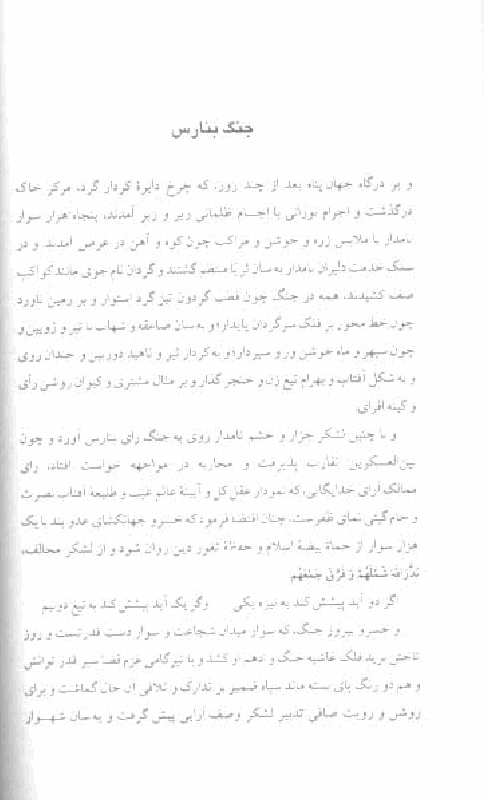 جنگ بنارس
و بر درگاه جهان پناه بعد از چند روز، که چرخ دایرهٔ کردار گرد، مرکز خاک
درگذشت و اجرام نورانی با اجسام ظلمانی زیر و زبر آمدند، پنجاه هزار سوار
نامدار با ملابس زره و جوشن و مراکب چون کوه و آهن در عرض آمدند و در
سلک خدمت دلیران نامدار به سان ثریا منتظم گشتند و گردان نام جوی مانند کواکب
صف کشیدند، همه در جنگ چون قطب گردون تیز گرد استوار و بر زمین ناورد
چون خط محور بر فلک سرگردان پایدار؛ و به سان صاعقه و شهاب با تیر و زوبین و
چون سپهر و ماه جوشن ور و سپردار؛ و به کردار تیر و ناهید دوربین و خندان روی
و به شکل آفتاب و بهرام تیغ زن و خنجر گذار و بر مثال مشتری و کیوان روشن رأی
و کینه افزای.
و با چنین لشکر جرار و حشم نامدار روی به جنگ رای بنارس آورد و چون
بین‌العسکرین تقارب پذیرفت و محاربه در مواجهه خواست افتاد، رای
ممالک آرای خدایگانی، که نمودار عقل کل و آیینهٔ عالم غیب و طلیعهٔ آفتاب نصرت
و جام گیتی نمای ظفرست، چنان اقتضا فرمود که خسرو جهانگشای عدو بند با یک
هزار سوار از حماة بیضهٔ اسلام و حفظهٔ ثغور دین روان شود و از لشکر مخالف،
شَمْلَهُمْ وَ فَرَّقَ جَمْعَهُم
اگر دو آید پیشش کند به نیزه یکی وگر یک آید پیشش کند به تیغ دو نیم
و خسرو پیروز جنگ، که سوار میدان شجاعت و سوار دست قدرتست و روز
تاختن برید فلک غاشیه جنگ و ادهم او کشد و با تیزگامی عزم قضا سیر قدر توانش
و هم دو رنگ پای بسته ماند سپاه ضمیر بر تدارک و تلافی آن حال گماشت و برای
روشن و رویت صافی تدبیر لشکر و صف آرایی پیش گرفت و به سان شهسوار